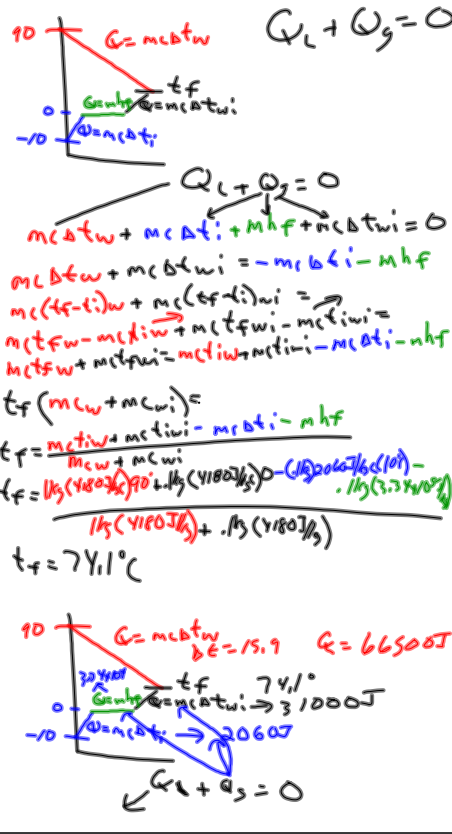 Q_L + Q_g = 0
90
Q = mcΔt_w
t_f
Q=mhf
Q=mcΔt_wi
0
Q=mcΔt_i
-10
Q_L + Q_g = 0
mcΔt_w + mcΔt_i + mhf + mcΔt_wi = 0
mcΔt_w + mcΔt_wi = -mcΔt_i - mhf
mc(tf-ti)_w + mc(tf-ti)_wi =
mctfw - mctiw + mctfwi - mctiwi =
mctfw + mctfwi = mctiw + mctiwi - mcΔti - mhf
t_f (mc_w + mc_wi) =
t_f = mctiw + mctiwi - mcΔti - mhf
mc_w + mc_wi
t_f = 1kg(4180J/kg)90° + .1kg(4180J/kg)0 - (.1kg)2060J/kg(10°) -
.1kg(3.34x10⁵J/kg)
1kg(4180J/kg) + .1kg(4180J/kg)
t_f = 74.1°C
90
Q = mcΔt_w
Δt = 15.9
Q = 66500J
3.34x10⁴
t_f
74.1°
Q=mhf
Q=mcΔt_wi → 31000J
0
-10
Q=mcΔt_i → 2060J
Q_L + Q_g = 0